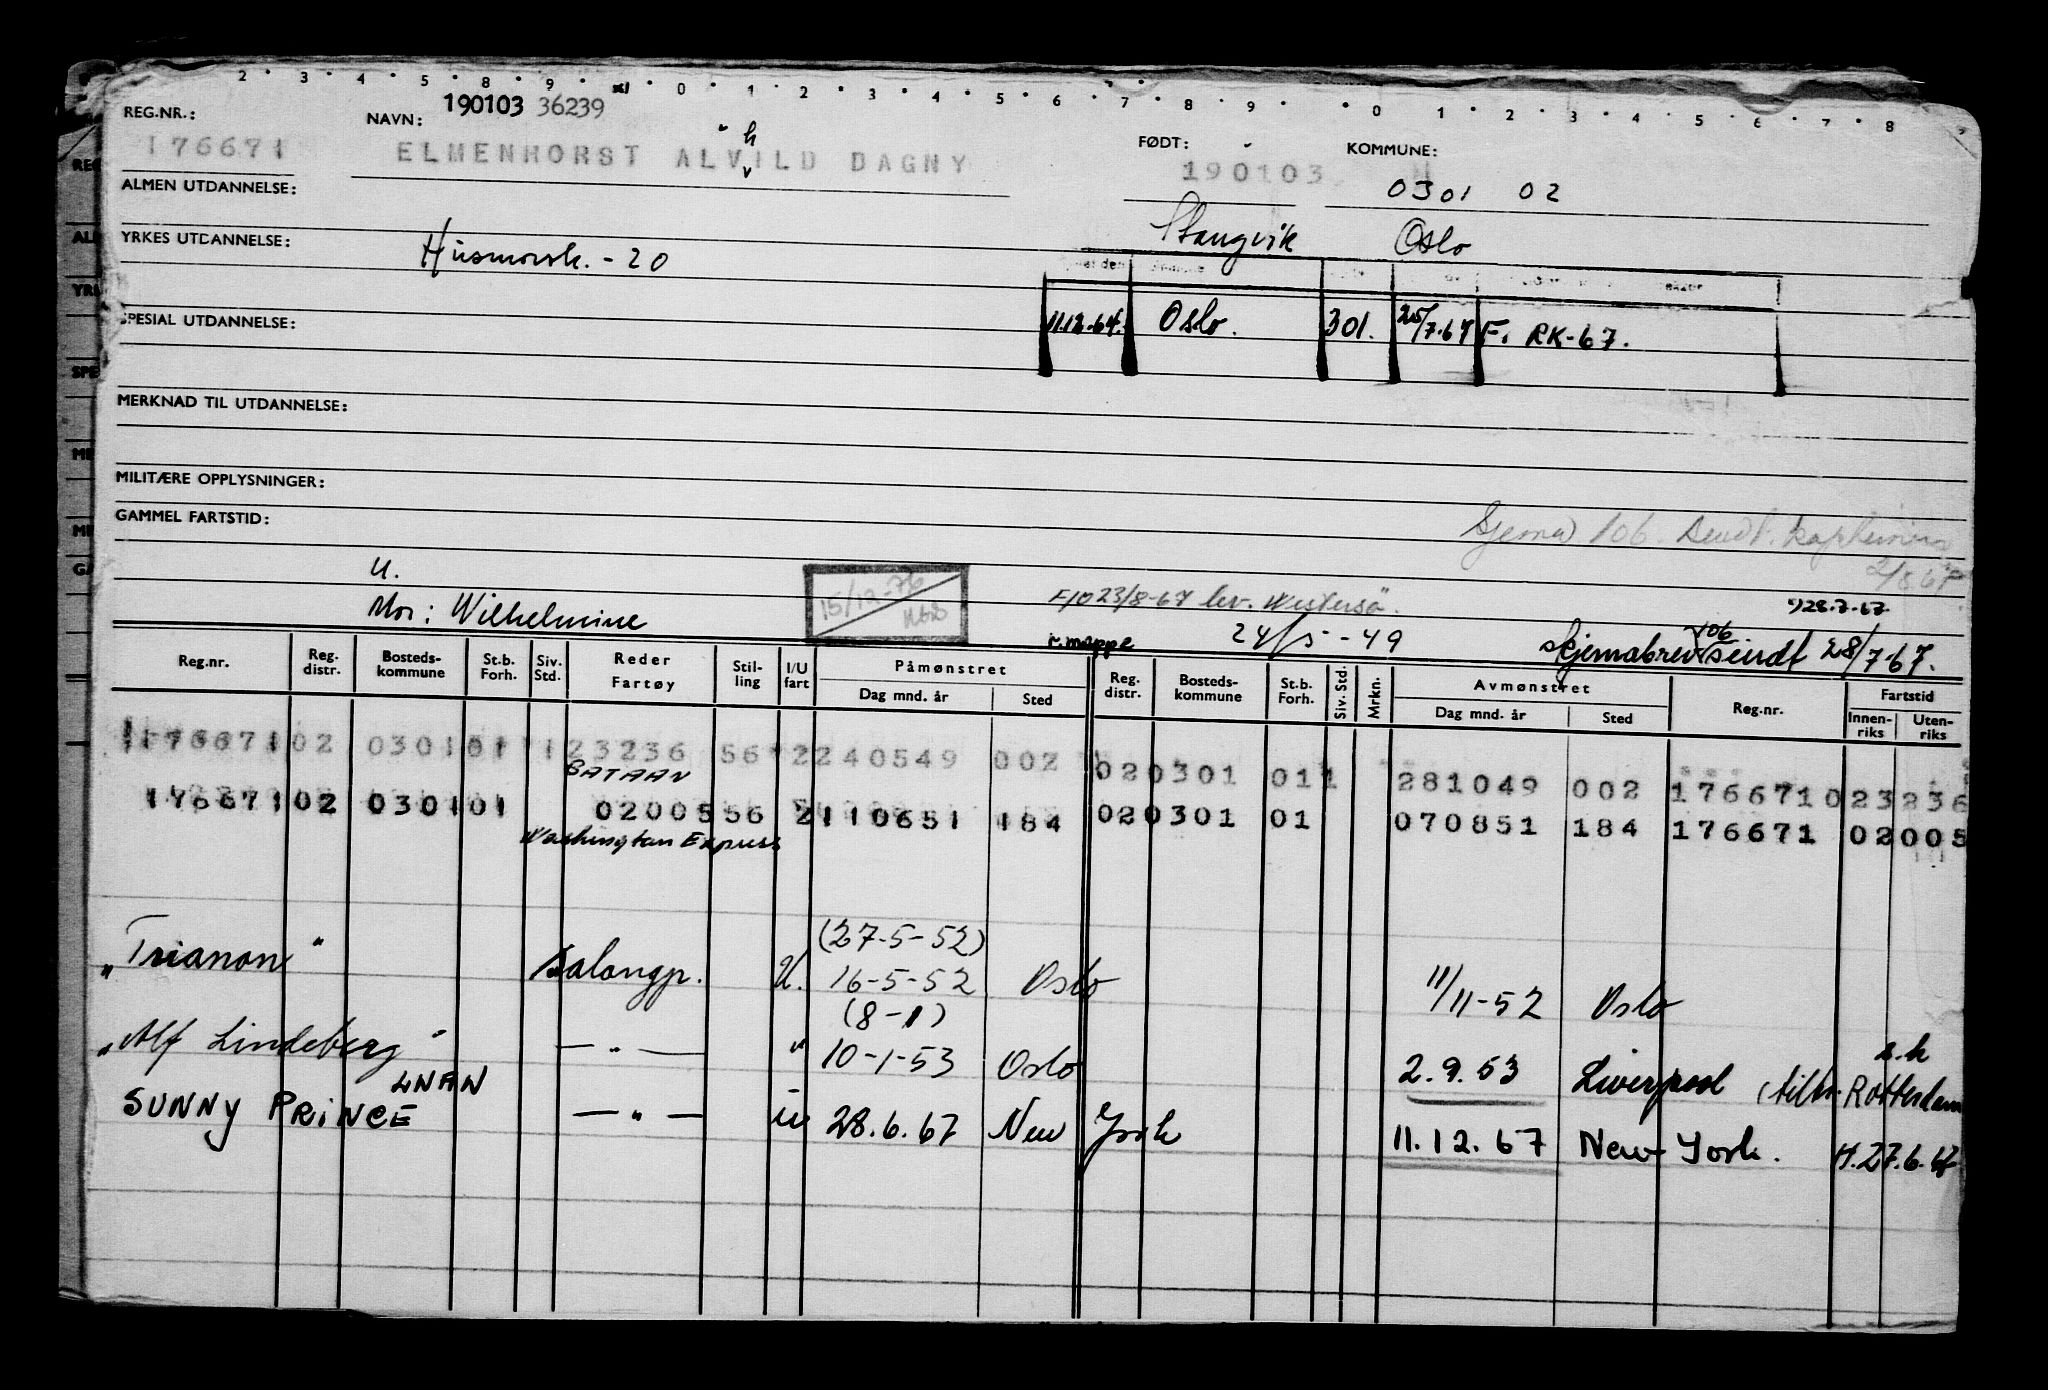 2 · 3 · 4 · 5 · 8 · 9 · 0 · 1 · 2 · 3 · 4 · 5 · 6 · 7 · 8 · 9 · 0 · 1 · 2 · 3 · 4 · 5 · 6 · 7 · 8
190103 36239
REG.NR.: NAVN: FØDT: KOMMUNE:
176671 ELMENHORST ALVHILD DAGNY 190103 0301 02
ALMEN UTDANNELSE:
Stangvik Oslo
YRKES UTDANNELSE: Husmorsk. - 20
SPESIAL UTDANNELSE: 11.12-64. Oslo. 301. 25/7-67 F. RK-67.
MERKNAD TIL UTDANNELSE:
MILITÆRE OPPLYSNINGER:
GAMMEL FARTSTID:
Sjema 106. sendt. kapteinen
2/8 67.
U. 15/12-76
F10 23/8-67 lev. Westersø. 28.7.67
Mor: Wilhelmine
r. mappe 24/5 - 49 Skjemabrev 106 sendt 28/7-67.
Reg.nr. Reg. distr. Bosteds-kommune St.b. Forh. Siv. Std. Reder Fartøy Stil-ling I/U fart Påmønstret Dag mnd. år Sted Reg. distr. Bosteds-kommune St.b. Forh. Siv. Std. Mrkn. Avmønstret Dag mnd. år Sted Reg.nr. Fartstid Innen-riks Uten-riks
176671 02 0301 01 1 23236 56 2 240549 002 02 0301 01 1 281049 002 176671 0 23236
BATAAN
176671 02 0301 01 02005 56 2 110651 184 02 0301 01 070851 184 176671 02005
Washington Express
"Trianon" Salongp. U. (27-5-52) 16-5-52 Oslo 11/11-52 Oslo
"Alf Lindeberg" — " — " (8-1) 10-1-53 Oslo 2.9.53 Liverpool (tiltr. Rotterdam
LNAN
SUNNY PRINCE — " — u 28.6.67 New York 11.12.67 New York. H. 27.6.67